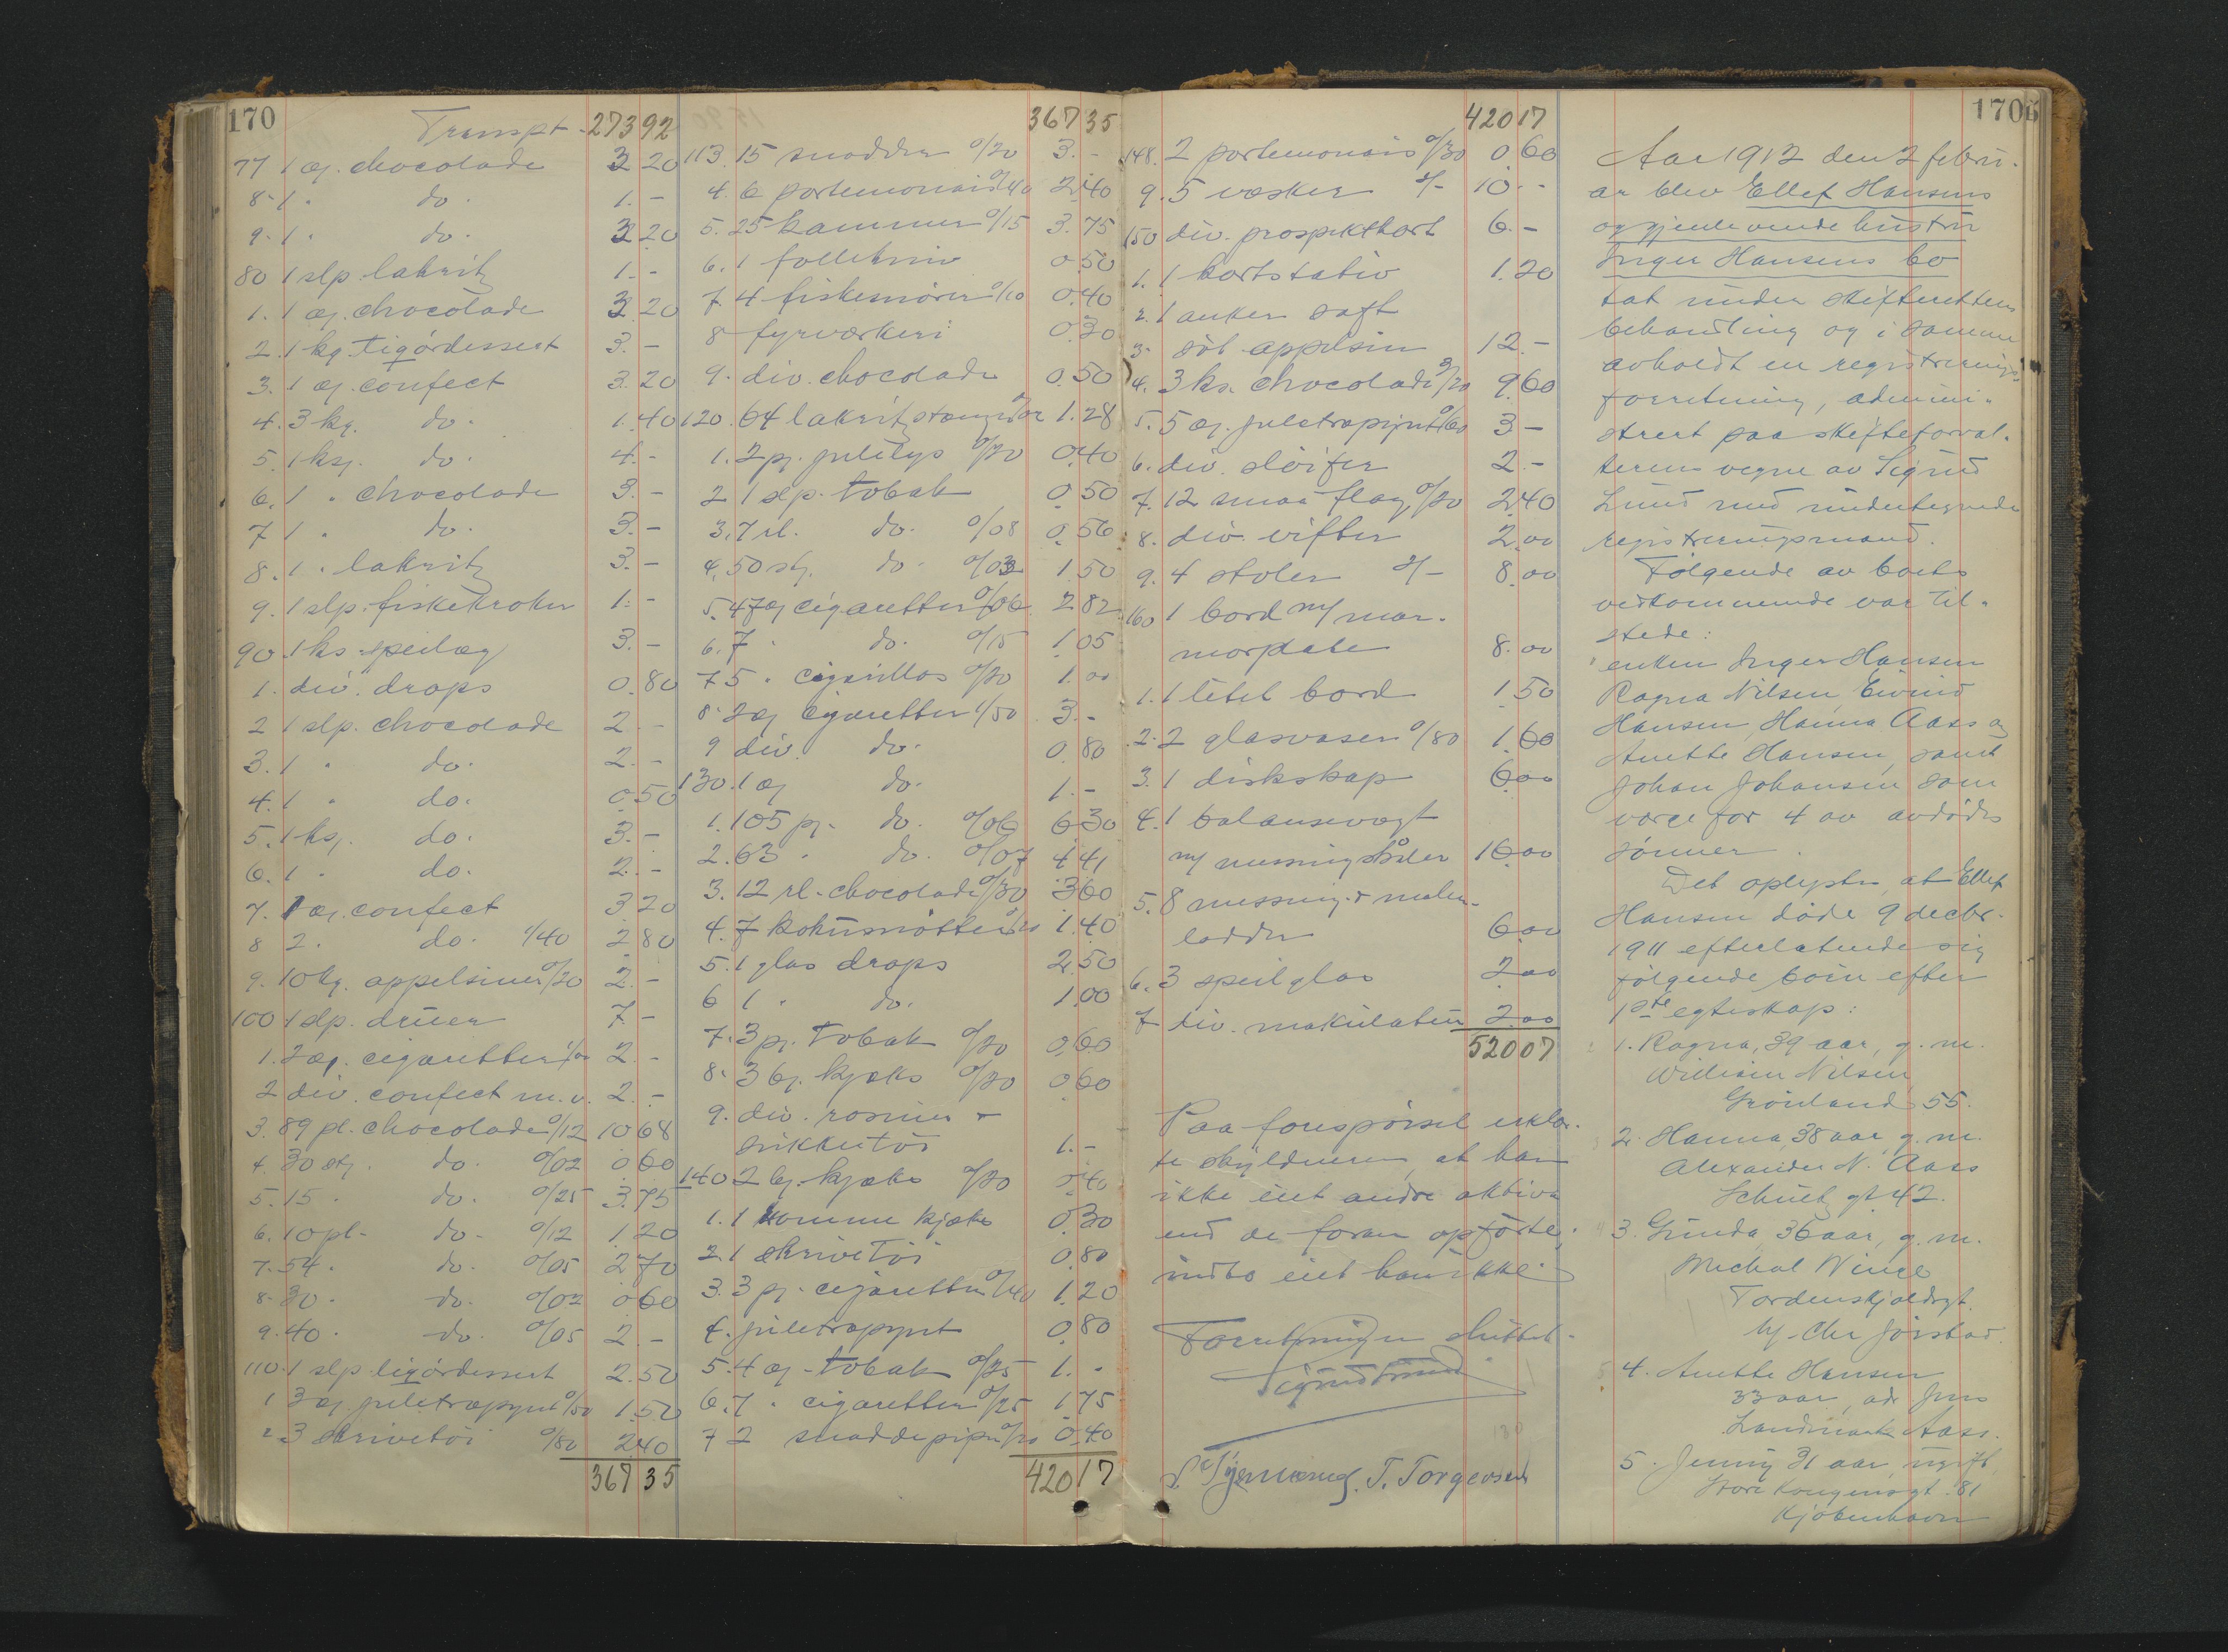 170
Transpt. 273 92
77 1 æ. chocolade 3 20
8. 1 " do. 1. -
9. 1 " do. 3 20
80 1 slp. lakritz 1. -
1. 1 æ. chocolade 3 20
2. 1 kg. tigórdessert 3. -
3. 1 æ. confect 3. 20
4. 3 kg. do. 1. 40
5. 1 ksj. do. 4. -
6. 1 " chocolade 3. -
7 1 " do. 3. -
8. 1 " lakritz 3. -
9. 1 slp. fiskekroker 1. -
90 1 ks. speilæg 3. -
1. div. drops 0. 80
2 1 slp. chocolade 2. -
3. 1 " do. 2. -
4. 1 " do. 0 50
5. 1 ksj. do. 3. -
6. 1 " do. 2. -
7. 1 æ. confect 3. 20
8 2 " do. 1/40 2 80
9. 10 kg. appelsiner 0/20 2. -
100 1 slp. druer 7. -
1. 2 æ. cigaretter 1/00 2. -
2 div. confect m. v. 2. -
3. 89 pl. chocolade 0/12 10 68
4. 30 stj. do. 0/02 0 60
5. 15 " do. 0/25 3. 75
6. 10 pl. do. 0/12 1. 20
7. 54 " do. 0/05 2 70
8. 30 " do. 0/02 0 60
9. 40 " do. 0/05 2. -
110. 1 slp tigórdessert 2. 50
1 3 æ. juletræpynt 0/50 1. 50
2. 3 skrivetöi 0/80 2. 40
367 35
367 35
113. 15 snadder 0/20 3. -
4. 6 portemonais 0/40 2. 40
5. 25 kammer 0/15 3. 75
6. 1 follekniv 0 50
7. 4 fiskesnörer 0/10 0. 40
8 fyrværkeri 0. 30
9. div. chocolade 0. 50
120. 64 lakritzstænger 0/02 1. 28
1. 2 pj. julelys 0/20 0. 40
2 1 slp. tobak 0. 50
3. 7 rl. do. 0/08 0. 56
4. 50 stj. do. 0/03 1 50
5. 47 æ cigaretter 0/06 2 82
6. 7 " do. 0/15 1. 05
7 5 " cigarillos 0/20 1. 00
8. 2 æ. cigaretter 1/50 3. -
9 div. do. 0. 80
130. 1 æ do. 1. -
1. 105 pj. do. 0/06 6 30
2. 63 " do. 0/07 4 41
3. 12 rl. chocolade 0/30 3 60
4. 7 kokusnötter 0/20 1. 40
5. 1 glas drops 2. 50
6 1 " do. 1. 00
7. 3 pj. tobak 0/20 0. 60
8. 3 bj. kjæks 0/20 0. 60
9. div. rosiner +
sukkertöi 1. -
140 2 bj. kjæks 0/20 0. 40
1. 1 tomme kjæks 0. 30
2. 1 skrivetöi 0. 80
3. 3 pj. cigaretter 0/40 1. 20
4. juletræpynt 0. 80
5. 4 æ. tobak 0/25 1. -
6. 7 " cigaretter 0/25 1 75
7 2 snaddepiper 0/20 0. 40
420 17
420 17
148. 2 portemonais 0/30 0 60
9. 5 væsker 2/- 10. -
150 div. prospektkort 6. -
1. 1 kortstativ 1. 20
2. 1 anker saft
3. söt appelsin 12. -
4. 3 ks. chocolade 3/20 9. 60
5. 5 æ. juletræpynt 0/60 3 -
6. div. slöifer 2. -
7. 12 smaa flag 0/20 2. 40
8. div. vifter 2. 00
9. 4 stoler 2/- 8. 00
160 1 bord m/ mar-
morplate 8. 00
1. 1 litet bord 1. 50
2. 2 glasvaser 0/80 1. 60
3. 1 diskskap 6. 00
4. 1 balansevægt
m/ messingskåler 10. 00
5. 8 messing + malm-
lodder 6. 00
6. 3 speilglas 2. 00
7 div. makulatur 2. 00
520 07
Paa forespörsel erklær-
te skyldneren, at han
ikke eiet andre aktiva
end de foran opförte,
indbo eiet han ikke.
Forretningen sluttet.
Sigurd Lund
T. Torgersen
170b
Aar 1912 den 2 febru-
ar blev Ellef Hansens
og gjenlevende hustru
Inger Hansens bo
tat under skifterettens
behandling og i samme
avholdt en registrerings-
forretning, admini-
strert paa skifteforval-
terens vegne av Sigurd
Lund med undertegnede
registreringsmænd.
Fölgende av boets
vedkommende var til-
stede:
enken Inger Hansen
Ragna Nilsen, Eivind
Hansen, Hanna Aass og
Anette Hansen, samt
Johan Johansen som
værge for 4 av avdödes
sönner.
Det oplystes, at Ellef
Hansen döde 9 decbr.
1911 efterlatende sig
fölgende börn efter
1ste egteskap:
1. Ragna, 39 aar, g. m.
William Nilsen
Grönland 55.
2. Hanna, 38 aar, g. m.
Alexander N. Aass
Schultz gt 42.
3. Gunda, 36 aar, g. m.
Michal Winge
Tordenskjoldsgt.
4. Anette Hansen
33 aar, adr Jens
Landmark Aass.
5. Jenny 31 aar, ugift
Store Kongensgt. 81
Kjöbenhavn